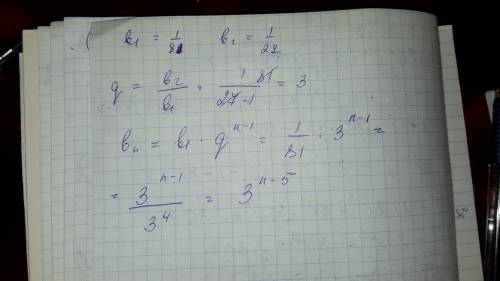 ( b₁ = 1/81 b₂ = 1/27
q = b₂/b₁ = 1·81/27·1 = 3
bₙ = b₁ · qⁿ⁻¹ = 1/81 · 3ⁿ⁻¹ =
= 3ⁿ⁻¹/3⁴ = 3ⁿ⁻⁵